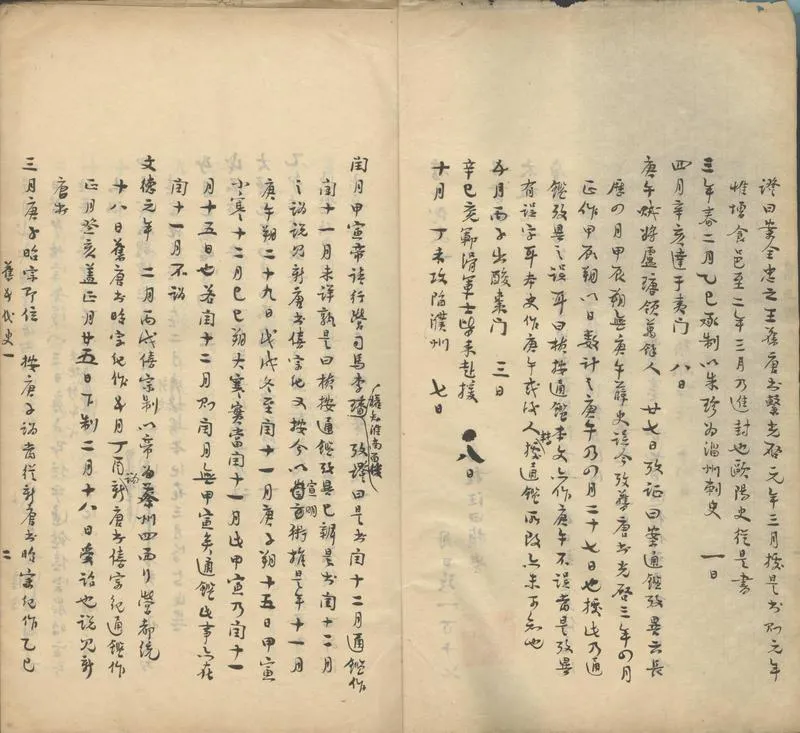 證曰案全忠之王舊唐书繫光启元年三月據是书则元年
惟增食邑至二年三月乃進封也歐陽史從是書
三年春二月乙巳承制以朱珍为淄州刺史　一日
四月辛亥達于夷门　八日
庚午賊將盧瑭領萬餘人　廿七日攷证曰案通鑑攷異云長
歷四月甲辰朔無庚午薛史誤今攷舊唐书光启三年四月
正作甲辰朔以日數計之庚午乃四月二十七日也據此乃通
鑑攷異之誤耳曰楨按通鑑本文亦作庚午不誤者是攷異
有誤字耳本史作庚午或後人據通鑑所改亦未可知也
五月丙子出酸棗门　三日
辛巳兗鄆滑軍士皆来赴援　八日
十月丁未攻陷濮州　七日
閏月甲寅帝請行營司馬李璠權知淮南留後　攷證曰是书閏十二月通鑑作
閏十一月未詳孰是曰楨按通鑑攷異已辨是书閏十二月
之誤说見新唐书僖宗纪又按今以宣明術推是年十一月
庚午朔二十九日戊戌冬至閏十一月庚子朔十五日甲寅
小寒十二月己巳朔大寒實當閏十一月此甲寅乃閏十一
月十五日也若閏十二月则閏月無甲寅矣通鑑此事亦在
閏十一月不誤
文德元年　二月丙戌僖宗制以帝为蔡州四面行營都統
十八日舊唐书昭宗纪作五月丁酉誤新唐书僖宗紀通鑑作
正月癸亥蓋正月廿五日下制二月十八日受詔也说見新
唐书
三月庚子昭宗即位　按庚子誤當從新唐书昭宗紀作乙巳
舊五代史一　二